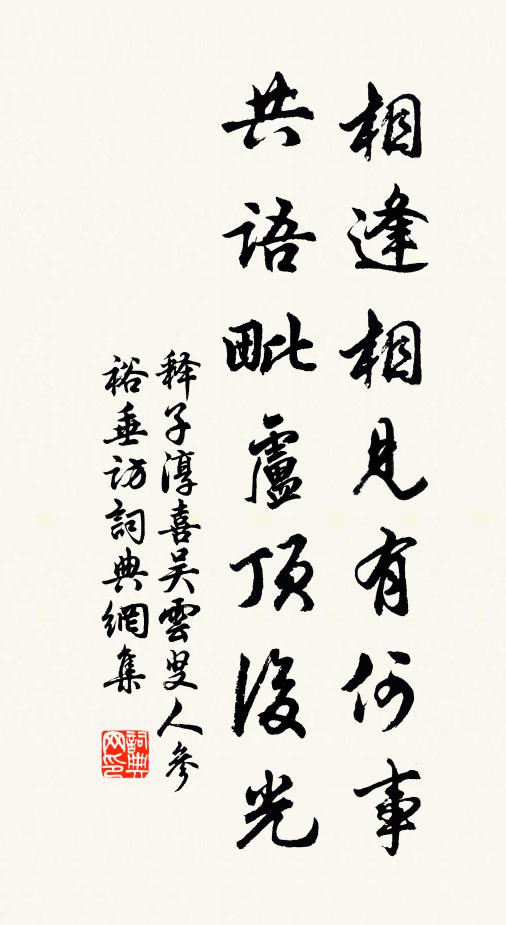 相逢相見有何事
共語毗盧頂後光
释子淳喜吴雲叟人參
裕垂访詞典網集
詞典網印